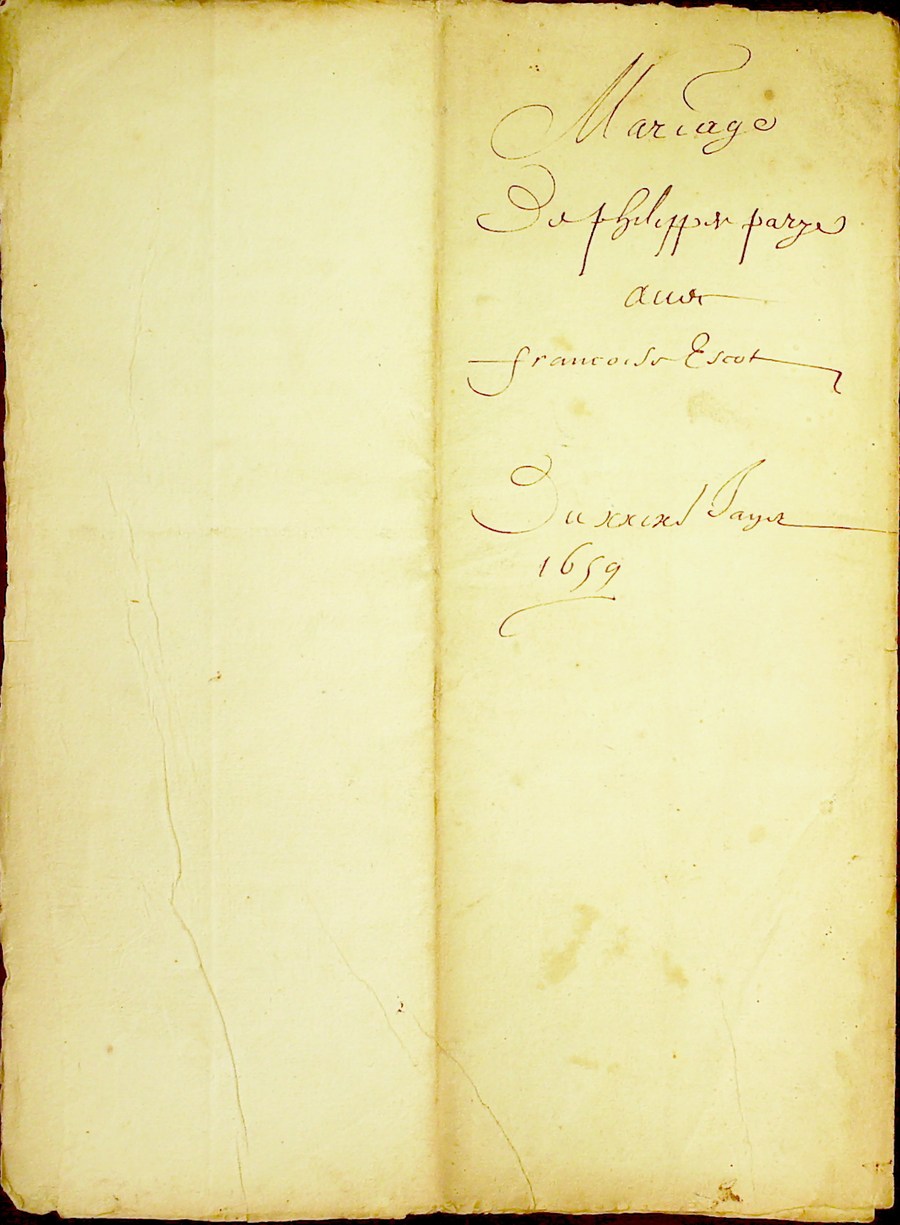 Mariage
De philippe parye
auec
francoise Escot
Du xxixe Januier
1659